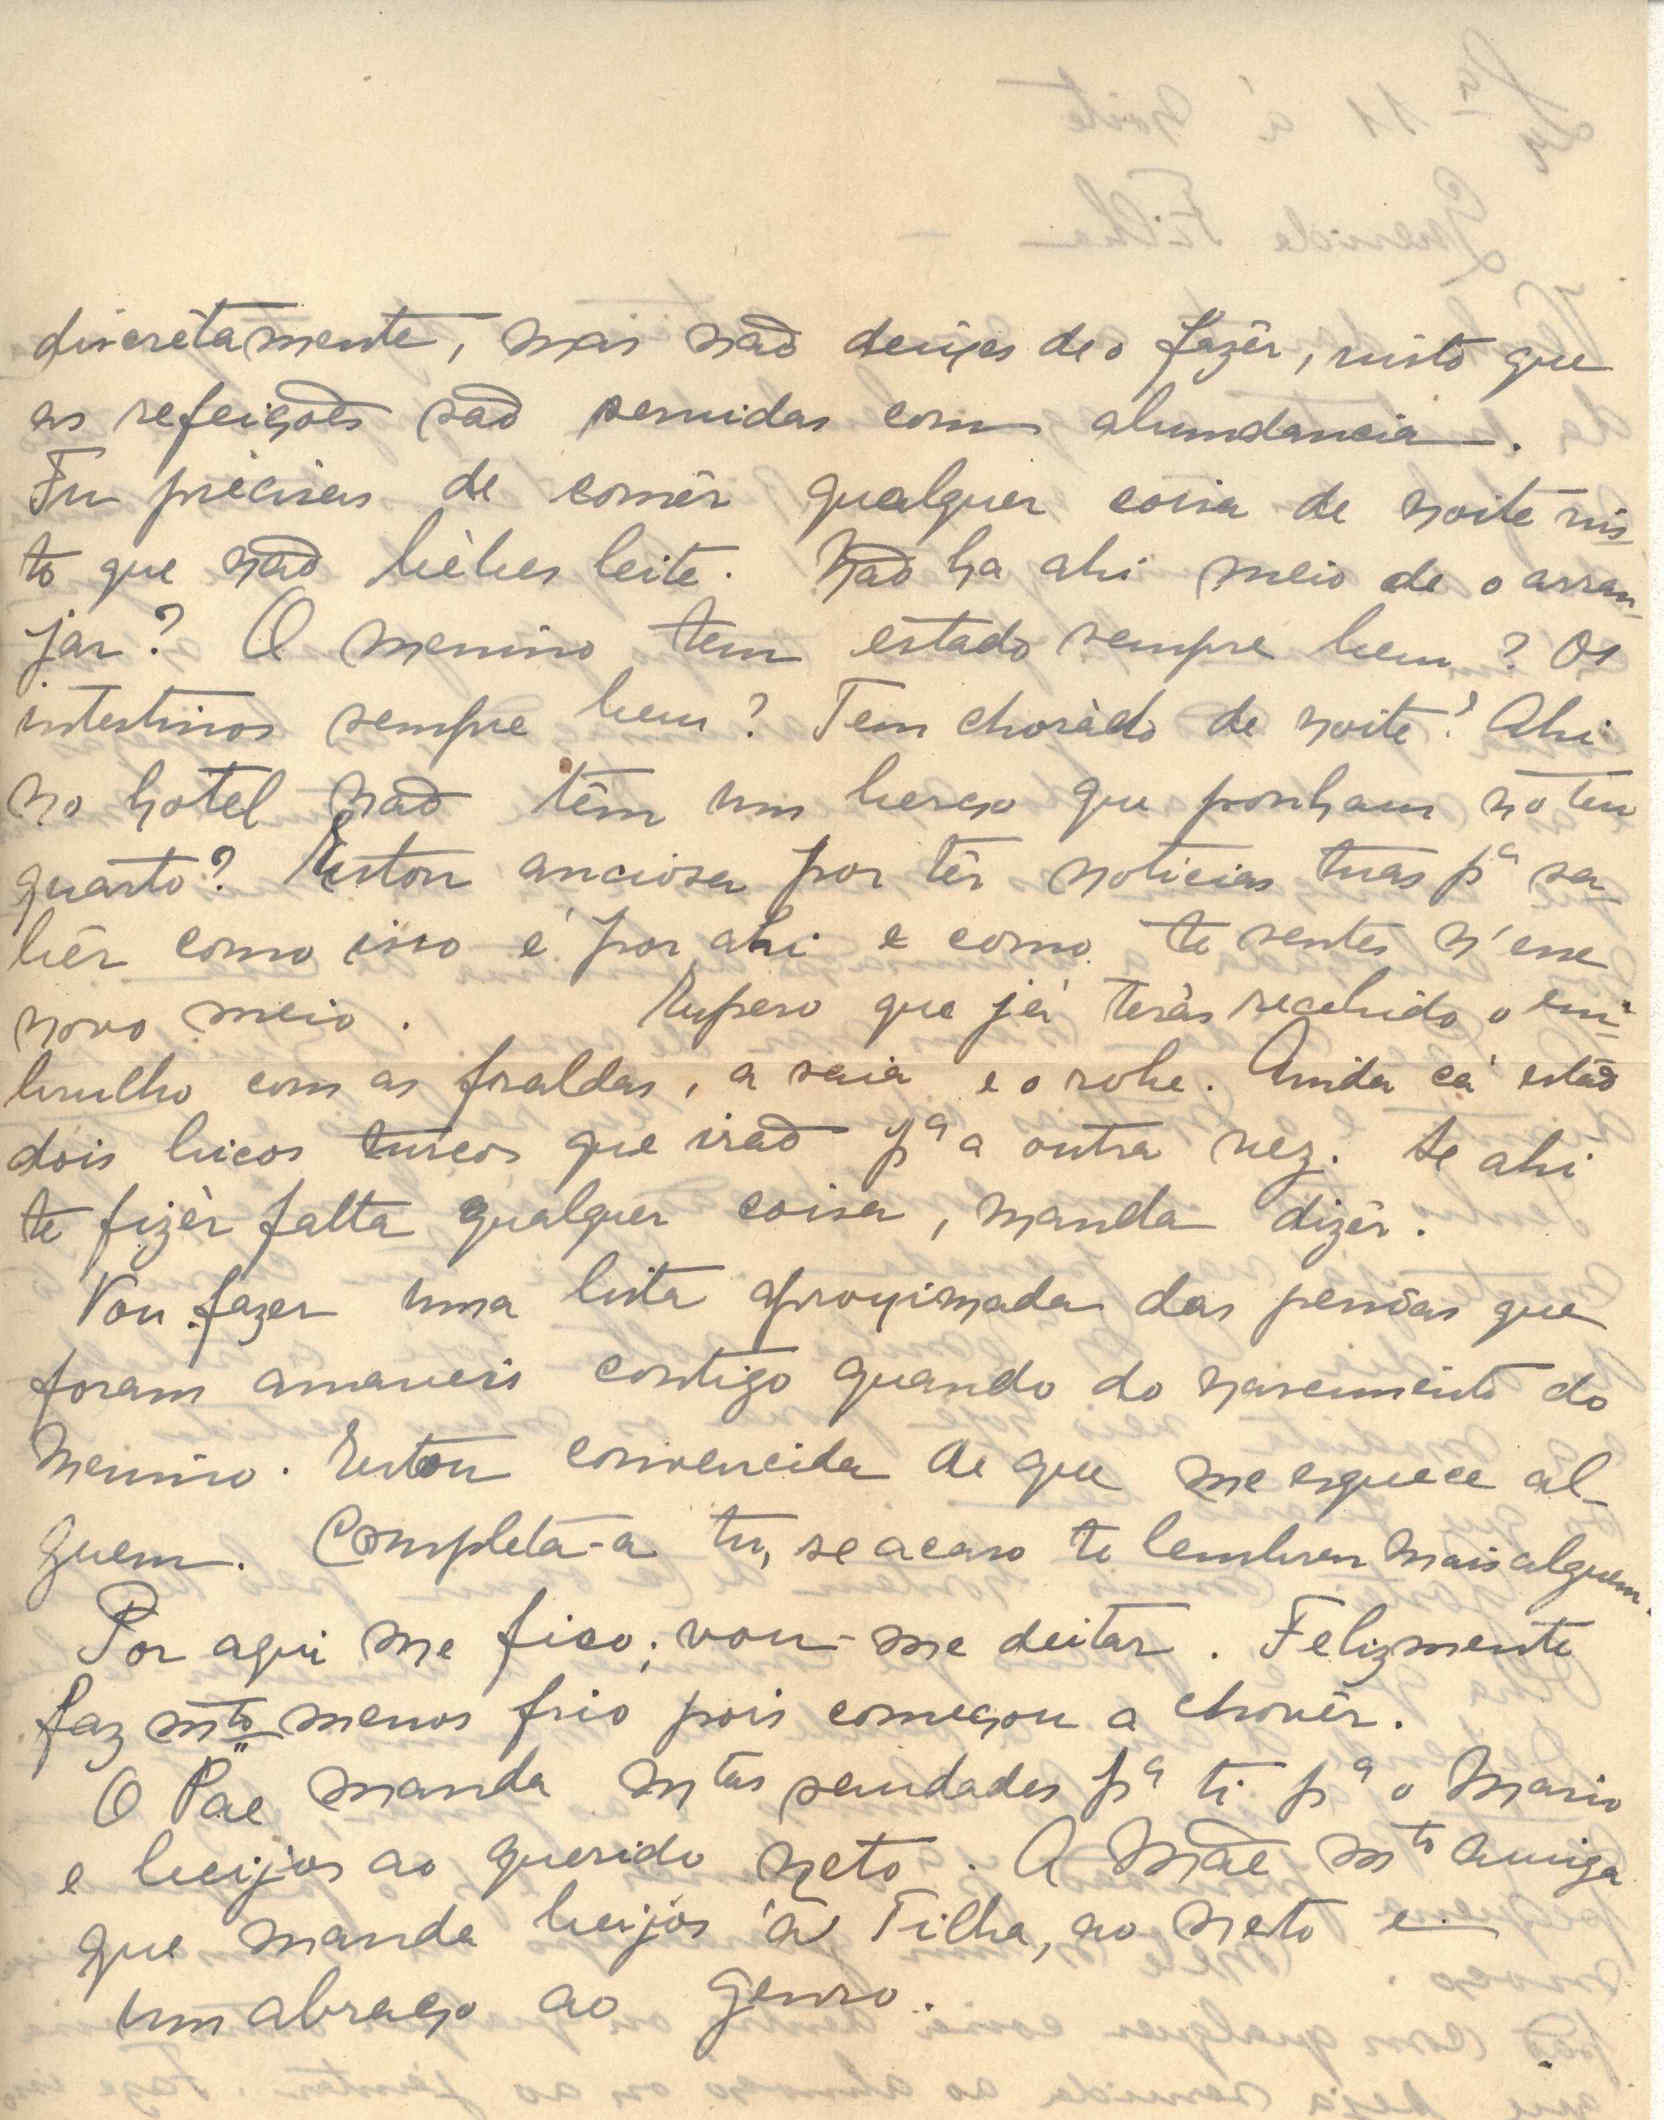 discrétamente, mas não deixes de o fazêr, visto que
as refeições são servidas com abundancia.
Tu précisas de comêr qualquer coisa de noite vis-
to que não bébes leite. Não ha ahi meio de o arran-
jar? O menino tem estado sempre bem? Os
intestinos sempre bem? Tem chorádo de noite? Ahi
no hotel não têm um berço que ponham no teu
quarto? Estou anciosa por têr noticias tuas pª sa-
bêr como isso é por ahi e como te sentes n'esse
novo meio. Espero que já terás recebido o em-
brulho com as fraldas, a saia e o robe. Ainda cá estão
dois bicos turcos que irão pª a outra vez. Se ahi
te fizér falta qualquer coisa, manda dizêr.
Vou fazer uma lista aproximada das pessôas que
foram amaveis contigo quando do nascimento do
Menino. Estou convencida de que me esquece al-
guem. Completa-a tu, se acaso te lembrar mais alguem.
Por aqui me fico; vou-me deitar. Felizmente
faz mto menos frio pois começou a chovêr.
O Pae manda mtas saudades pª ti pª o Mario
e beijos ao querido neto. A Mãe mto amiga
que manda beijos á Filha, ao neto e
um abraço ao genro.